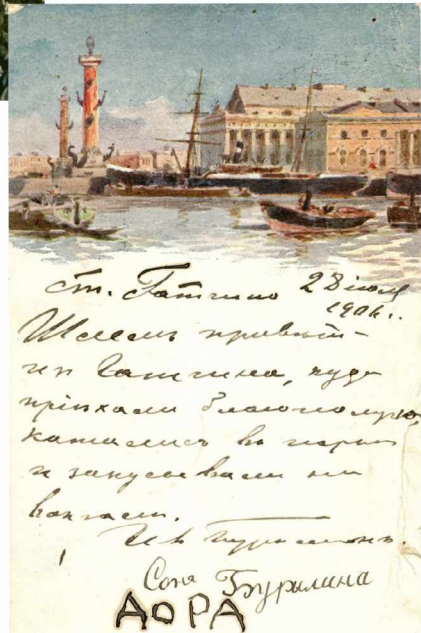 ст. Гатчино 28 июля
1906 г.
Шлемъ привѣтъ
изъ Гатчина, куда
пріѣхали благополучно,
катались въ паркѣ
и закусывали на
вокзалѣ.
Соня Бурылина
ДОРА